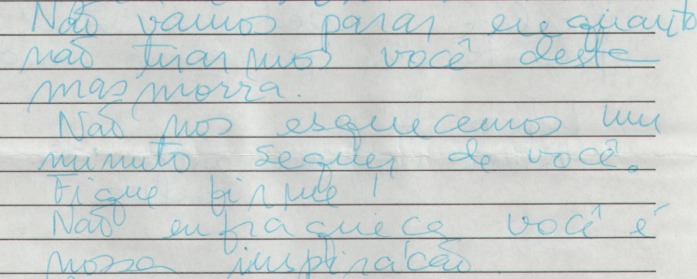 Não vamos parar enquanto
não tirarmos você desta
masmorra.
Não nos esquecemos um
minuto sequer de você.
Fique firme!
Não enfraqueça você é
nossa inspiração